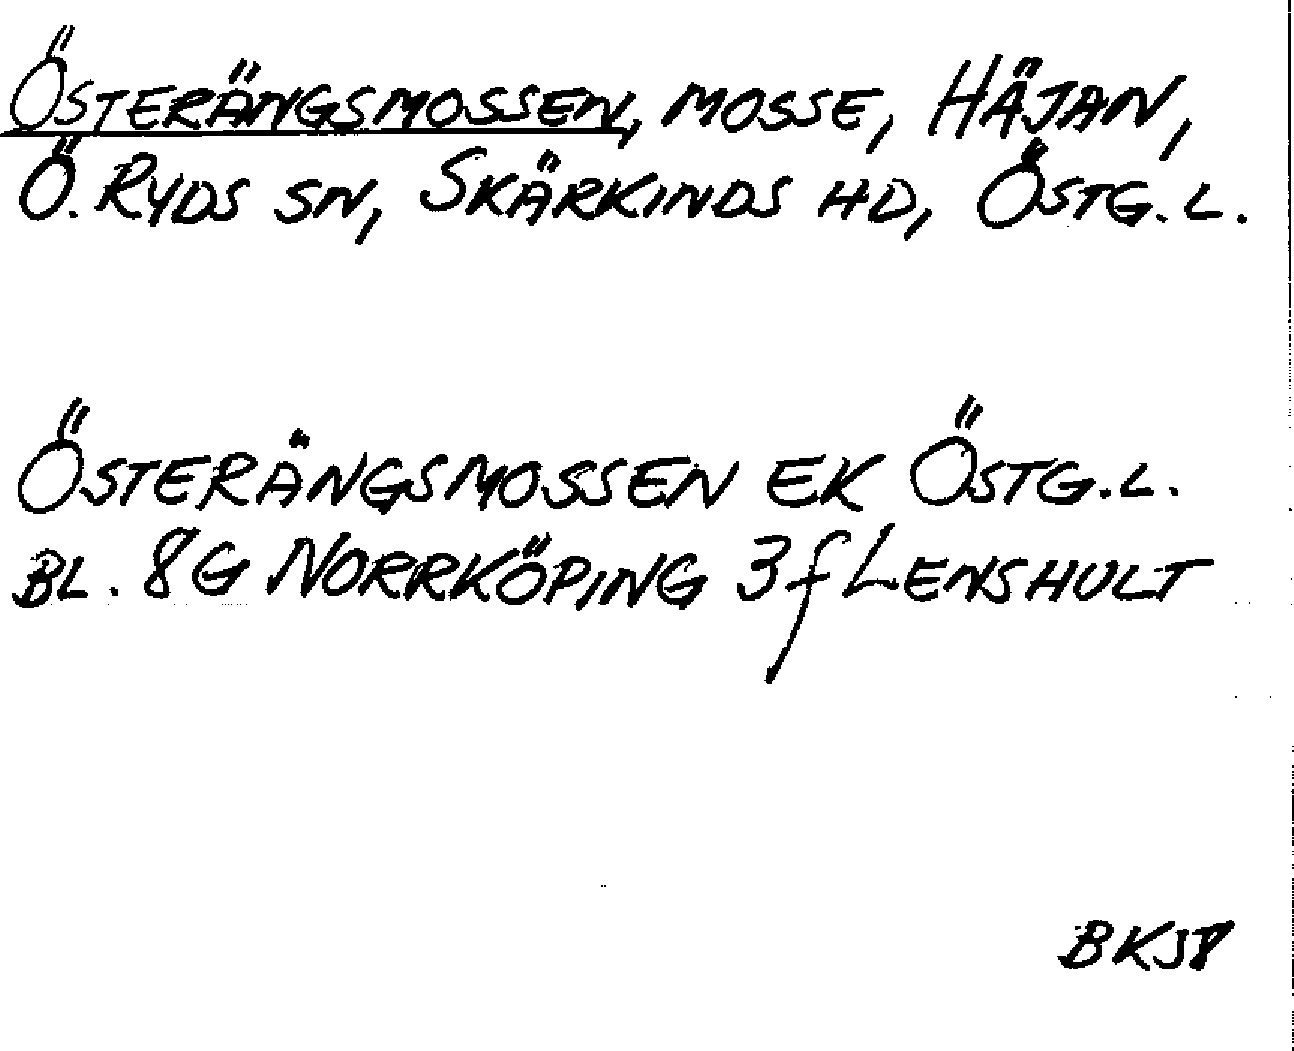 ÖSTERÄNGSMOSSEN, MOSSE, HÄJAN,
Ö. RYDS SN, SKÄRKINDS HD, ÖSTG. L.
ÖSTERÄNGSMOSSEN EK ÖSTG. L.
BL. 8G NORRKÖPING 3f LENSHULT